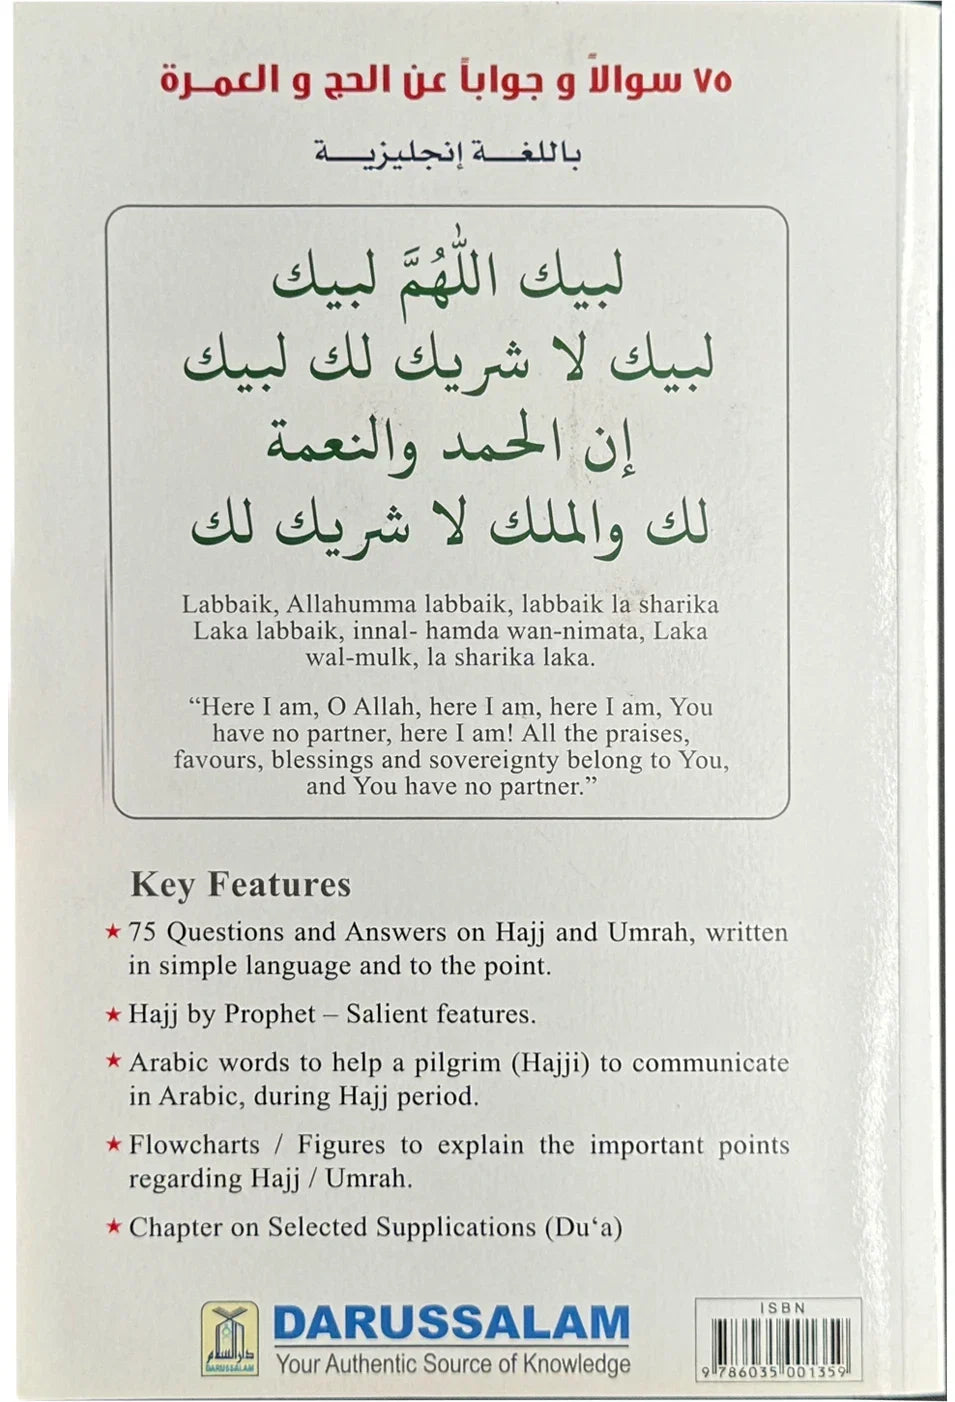 ٧٥ سوالاً و جواباً عن الحج و العمرة
باللغة إنجليزية
لبيك اللهُمَّ لبيك
لبيك لا شريك لك لبيك
إن الحمد والنعمة
لك والملك لا شريك لك
Labbaik, Allahumma labbaik, labbaik la sharika
Laka labbaik, innal- hamda wan-nimata, Laka
wal-mulk, la sharika laka.
“Here I am, O Allah, here I am, here I am, You
have no partner, here I am! All the praises,
favours, blessings and sovereignty belong to You,
and You have no partner.”
Key Features
★ 75 Questions and Answers on Hajj and Umrah, written
in simple language and to the point.
★ Hajj by Prophet – Salient features.
★ Arabic words to help a pilgrim (Hajji) to communicate
in Arabic, during Hajj period.
★ Flowcharts / Figures to explain the important points
regarding Hajj / Umrah.
★ Chapter on Selected Supplications (Du‘a)
دار السلام
DARUSSALAM
DARUSSALAM
Your Authentic Source of Knowledge
ISBN
9 786035 001359